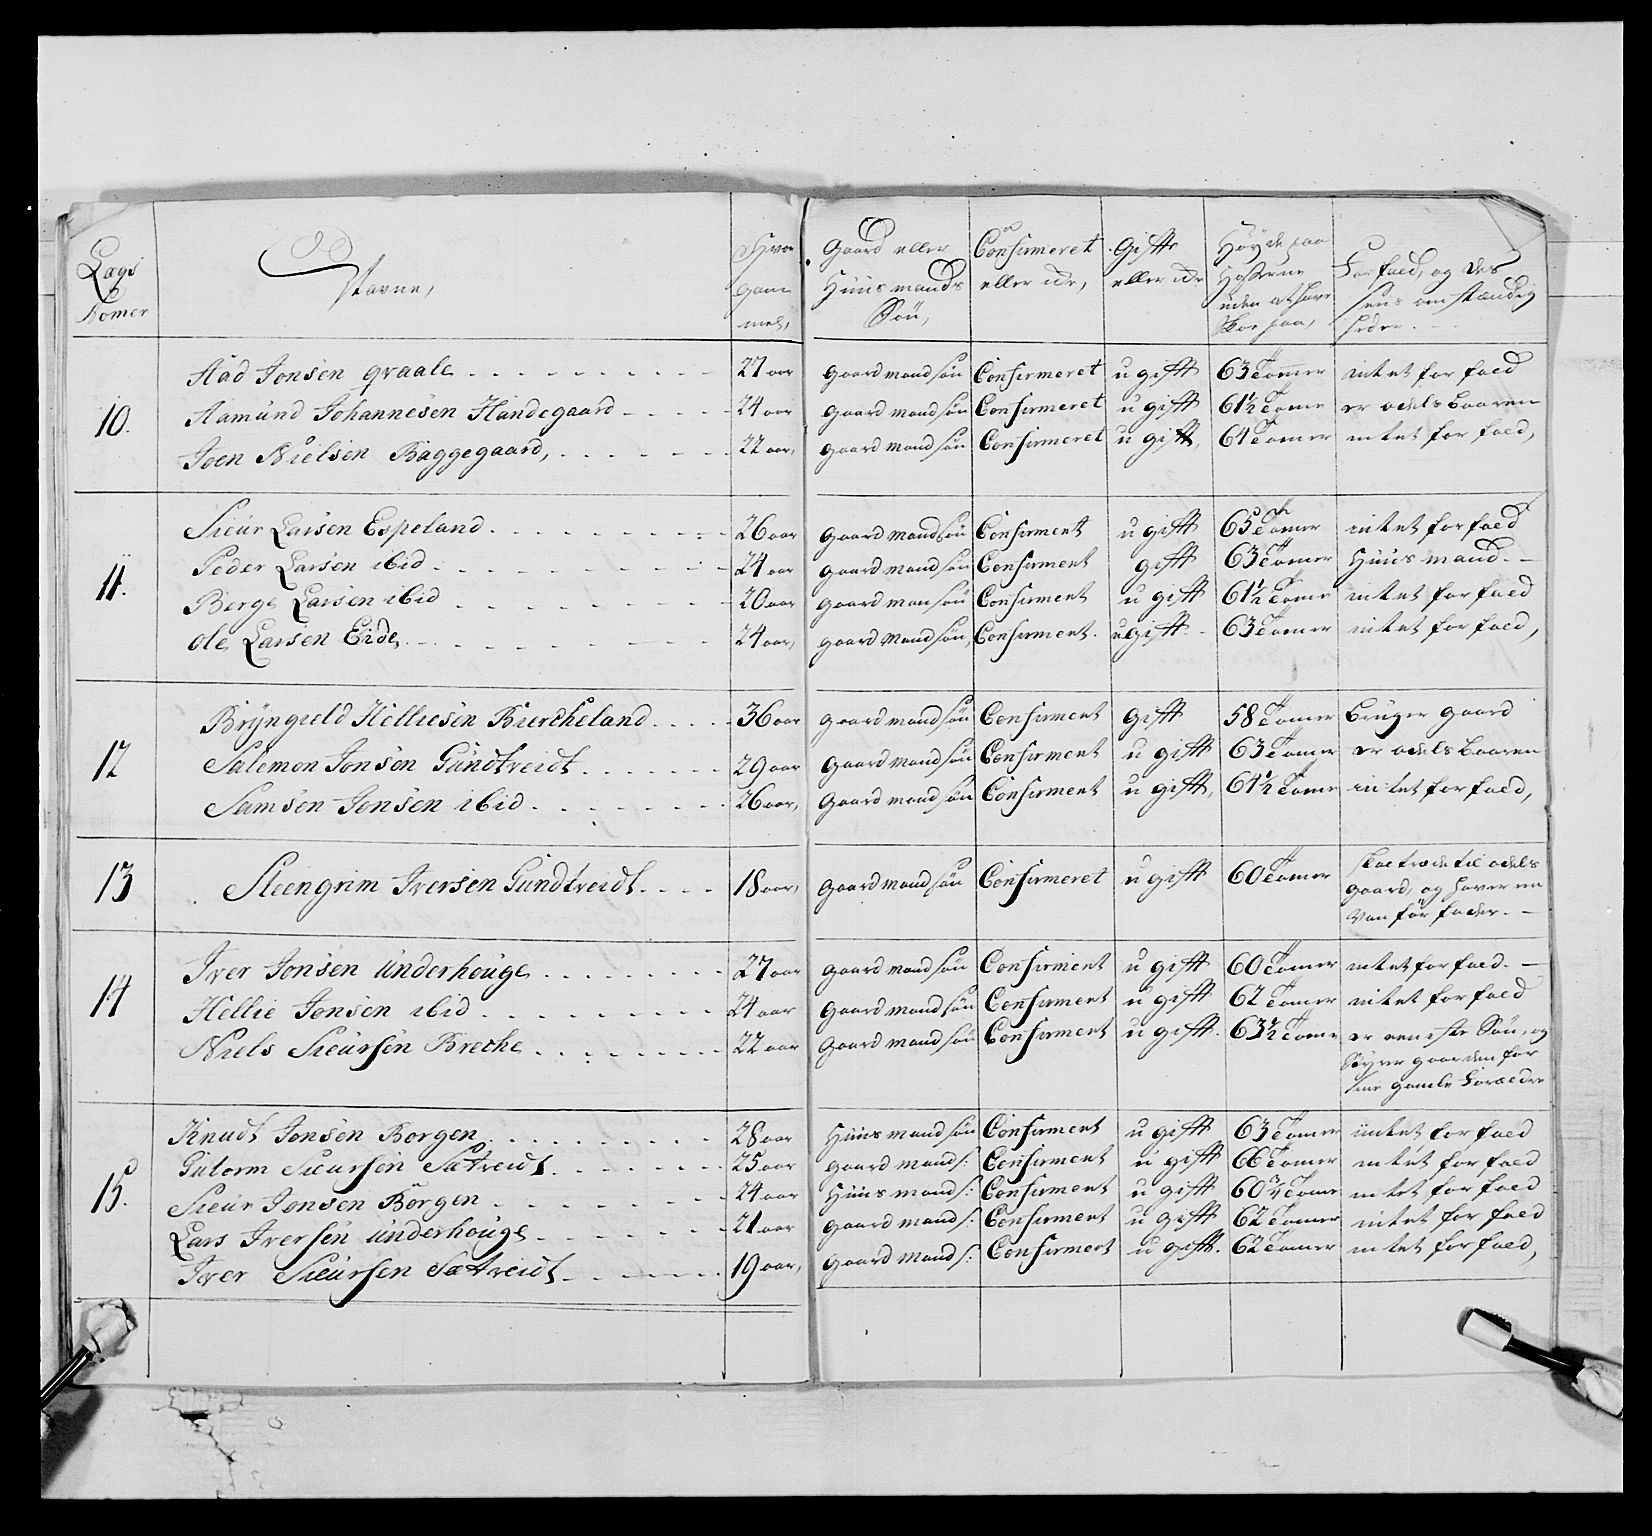 Lags Nomer | Nafne, | Hvor gammel, | Gaard eller Huusmands Søn, | Confirmeret eller icke, | Gift eller icke | Høyde paa Hosserne uden at have Skoe paa, | Forfald, og des sens omstændigheder.
10. | Aad Jonsen qraale | 27 aar | gaardmandsøn | Confirmeret | ugift | 63 Tommer | intet forfald
Aamund Johannesen Handegaard | 24 aar | gaardmandsøn | Confirmeret | ugift | 61½ Tomme | er odelsbaaren
Joen Nielsen Baggegaard, | 22 aar, | gaardmandsøn | Confirmeret | ugift, | 61 Tommer | intet forfald,
11. | Siur Larsen Espeland | 26 aar | gaardmandsøn | Confirment | ugift | 65 Tommer | intet forfald
Peder Larsen ibid | 24 aar | gaardmandsøn | Confirment | gift | 63 Tommer | Huusmand.
Berge Larsen ibid | 20 aar | gaardmansøn | Confirment | ugift | 61½ Tomme | intet forfald
Ole Larsen Eide, | 24 aar, | gaardmandsøn, | Confirment. | ugift. | 63 Tommer | intet forfald,
12 | Brÿngield Helliesen Biercheland | 36 aar | gaardmandsøn | Confirment | Gift | 58 Tommer | bruger gaard
Salemon Jonsen Gundtveidt | 29 aar | gaardmandsøn | Confirment | ugift | 63 Tommer | er odelsbaaren
Samsen Jonsen ibid | 26 aar, | gaardmandsøn | Confirment | ugift, | 61½ Tomme | intet forfald,
13 | Steengrim Iversen Gundtveidt | 18 aar, | gaardmandsøn | Confirmeret | ugift | 60 Tommer | skal træde til odels
gaard, og haver en
vanfør fader.
14 | Iver Jonsen Underhouge | 27 aar | gaardmandsøn | Confirment | ugift | 60 Tommer | intet forfald.
Hellie Jonsen ibid | 24 aar | gaardmandsøn | Confirment | ugift | 62 Tommer | intet forfald
Niels Sieursen Breche | 22 aar | gaardmandsøn | Confirment | ugift. | 63½ Tomme | er eeneste Søn, og
Styrer gaarden for
sine gamle Forældre
15. | Knudt Jonsen Borgen | 28 aar | Huusmandsøn | Confirment | ugift | 63 Tommer | intet forfald
Gutorm Sieursen Sætveidt | 25 aar | gaardmands: | Confirment | ugift | 66 Tommer | intet forfald
Sieur Jonsen Borgen | 24 aar | Huusmands: | Confirment | ugift | 60¾ Tomme | intet forfald
Lars Iversen Underhouge | 21 aar | gaardmands: | Confirment | ugift | 62 Tommer | intet forfald
Iver Sieursen Sætveidt | 19 aar, | gaardmands: | Confirmert | ugift. | 62 Tommer | intet forfald,